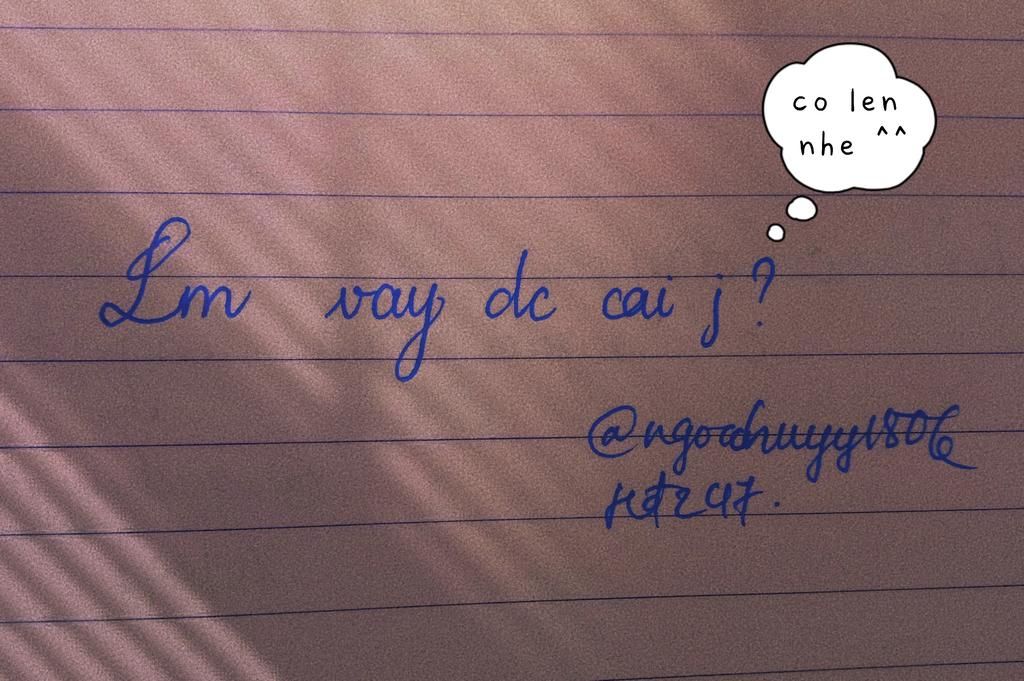 co len
nhe ^^
Lm vay dc cai j?
@ngocchuyy1806